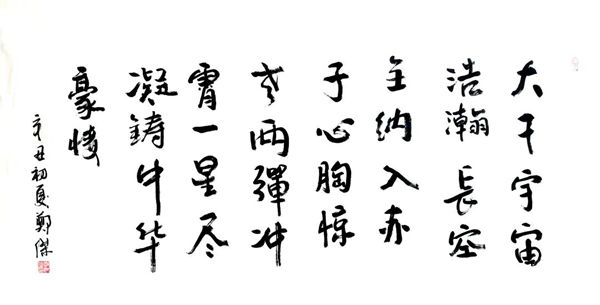 大千宇宙
浩瀚長空
全納入赤
子心胸惊
世两彈冲
霄一星尽
凝鑄中华
豪情
辛丑初夏鄭傑